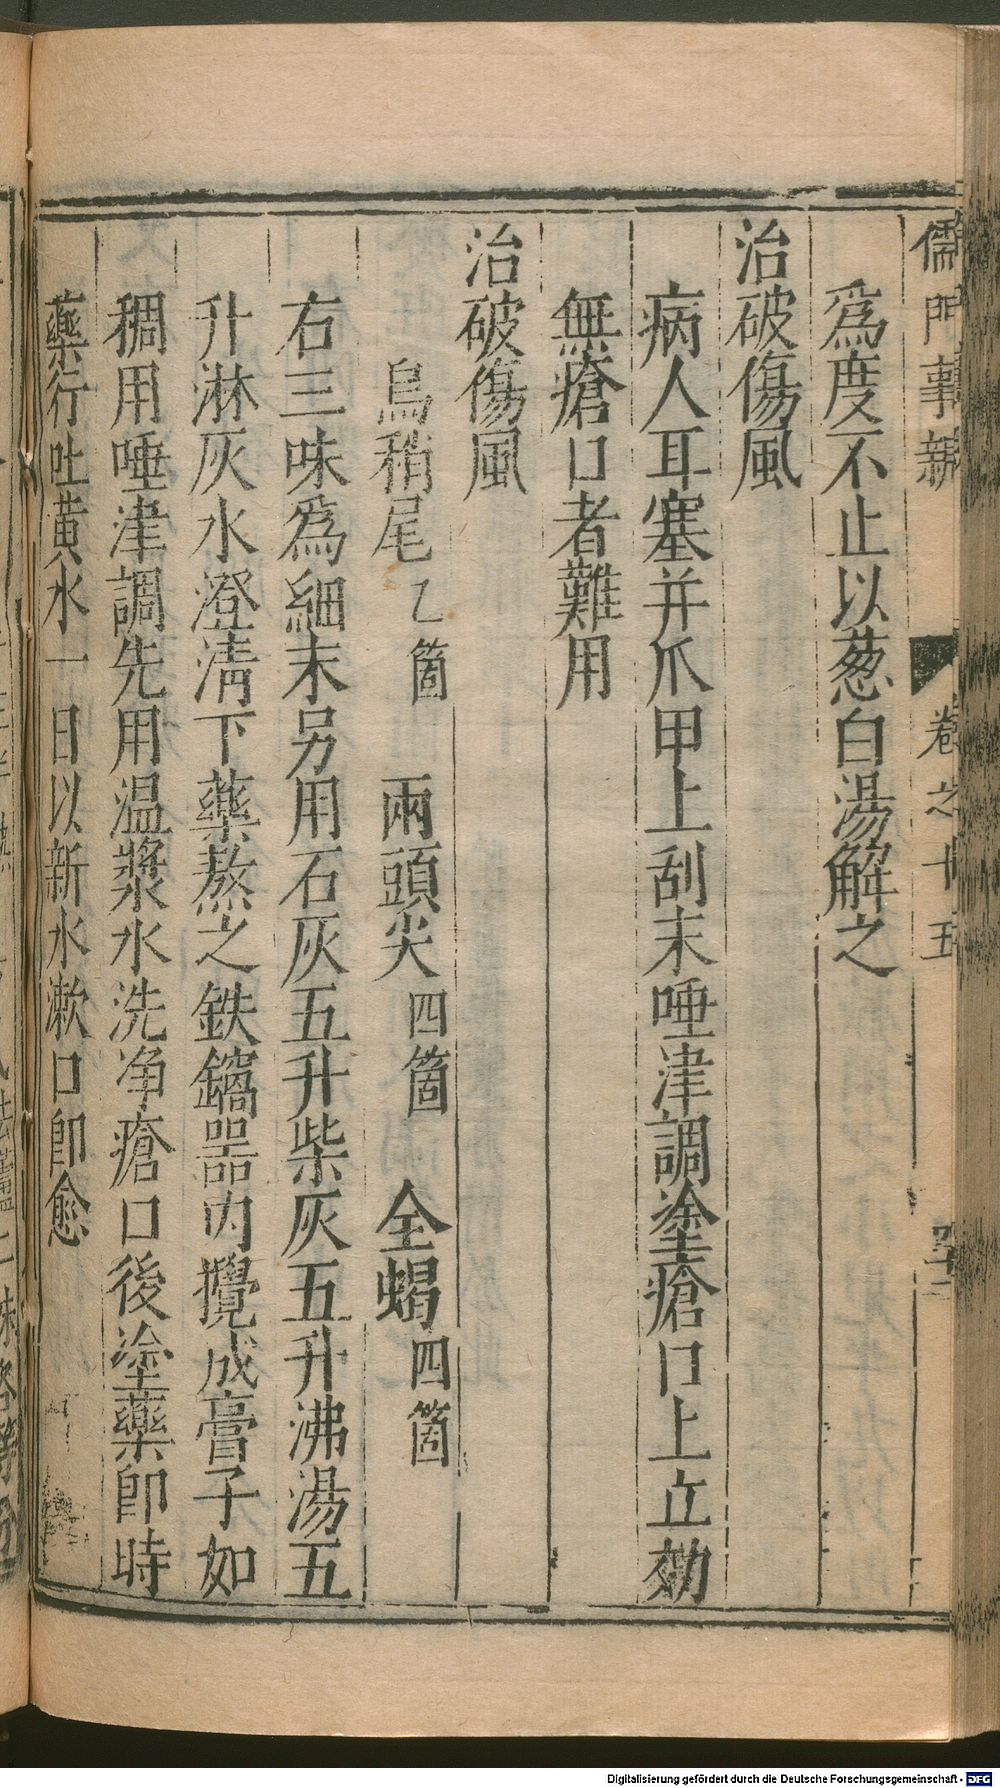 儒門事親 卷之十五
為度不止以葱白湯解之
治破傷風
病人耳塞并爪甲上刮末唾津調塗瘡口上立効
無瘡口者難用
治破傷風
烏稍尾乙箇 兩頭尖四箇 全蝎四箇
右三味為細末另用石灰五升柴灰五升沸湯五
升淋灰水澄清下藥熬之鉄鍋器内攪成膏子如
稠用唾津調先用温漿水洗净瘡口後塗藥即時
藥行吐黃水一日以新水漱口即愈
Digitalisierung gefördert durch die Deutsche Forschungsgemeinschaft - DFG